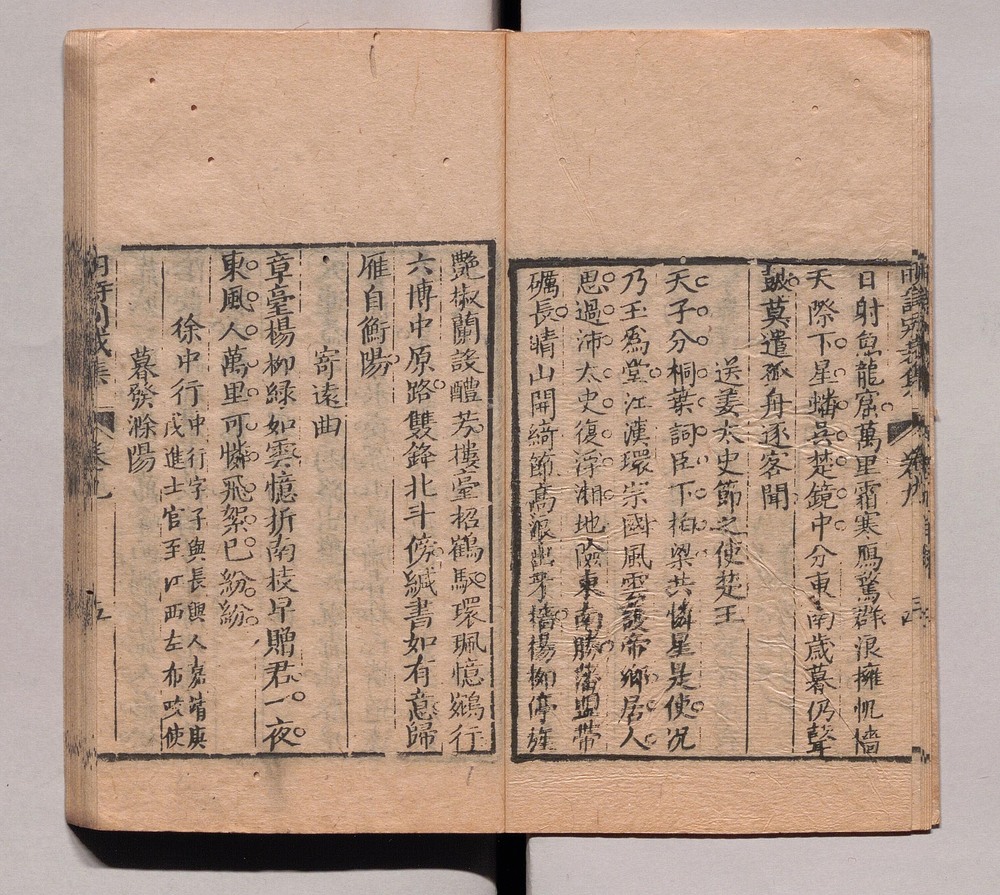 日射魚龍窟萬里霜寒鴈鶩群浪擁帆檣
天際下星蟠吳楚鏡中分東南歲暮仍聲
鼓莫遣孤舟逐客聞
送姜太史節之使楚王
天子分桐葉詞臣下柏梁共憐星是使况
乃玉爲堂江漢環宗國風雲護帝鄉居人
思過沛太史復浮湘地險東南勝藩盟帶
礪長晴山開綺節高浪出牙檣楊柳停旌
艷椒蘭設醴芳樓臺招鶴馭環珮憶鵷行
六博中原路雙鋒北斗傍緘書如有意歸
雁自衡陽
寄遠曲
章臺楊柳綠如雲憶折南枝早贈君一夜
東風人萬里可憐飛絮巳紛紛
徐中行 中行字子與長興人嘉靖庚
戌進士官至江西左布政使
暮發滁陽
卷九